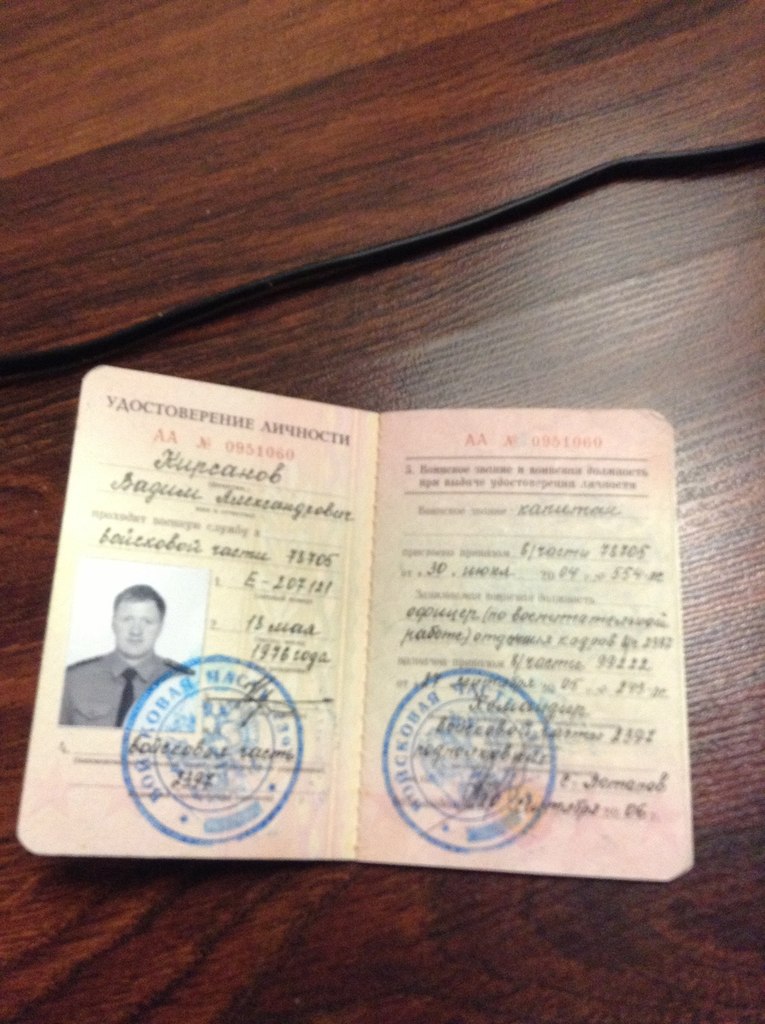 УДОСТОВЕРЕНИЕ ЛИЧНОСТИ
АА № 0951060
Кирсанов
Вадим Александрович
проходит военную службу в
войсковой части 78705
1. Е-207121
2. 13 мая
1976 года
4. войсковая часть
2397
ВОЙСКОВАЯ ЧАСТЬ
АА № 0951060
5. Воинское звание и воинская должность
при выдаче удостоверения личности
Воинское звание капитан
присвоено приказом в/части 78705
от 30 июля 20 04 г. № 554-лс
Занимаемая воинская должность
офицер (по воспитательной
работе) отделения кадров в/ч 2397
назначен приказом в/части 99222
от 20 05 г. №
Командир
войсковой части 2397
подполковник
20 06 г.
ВОЙСКОВАЯ ЧАСТЬ